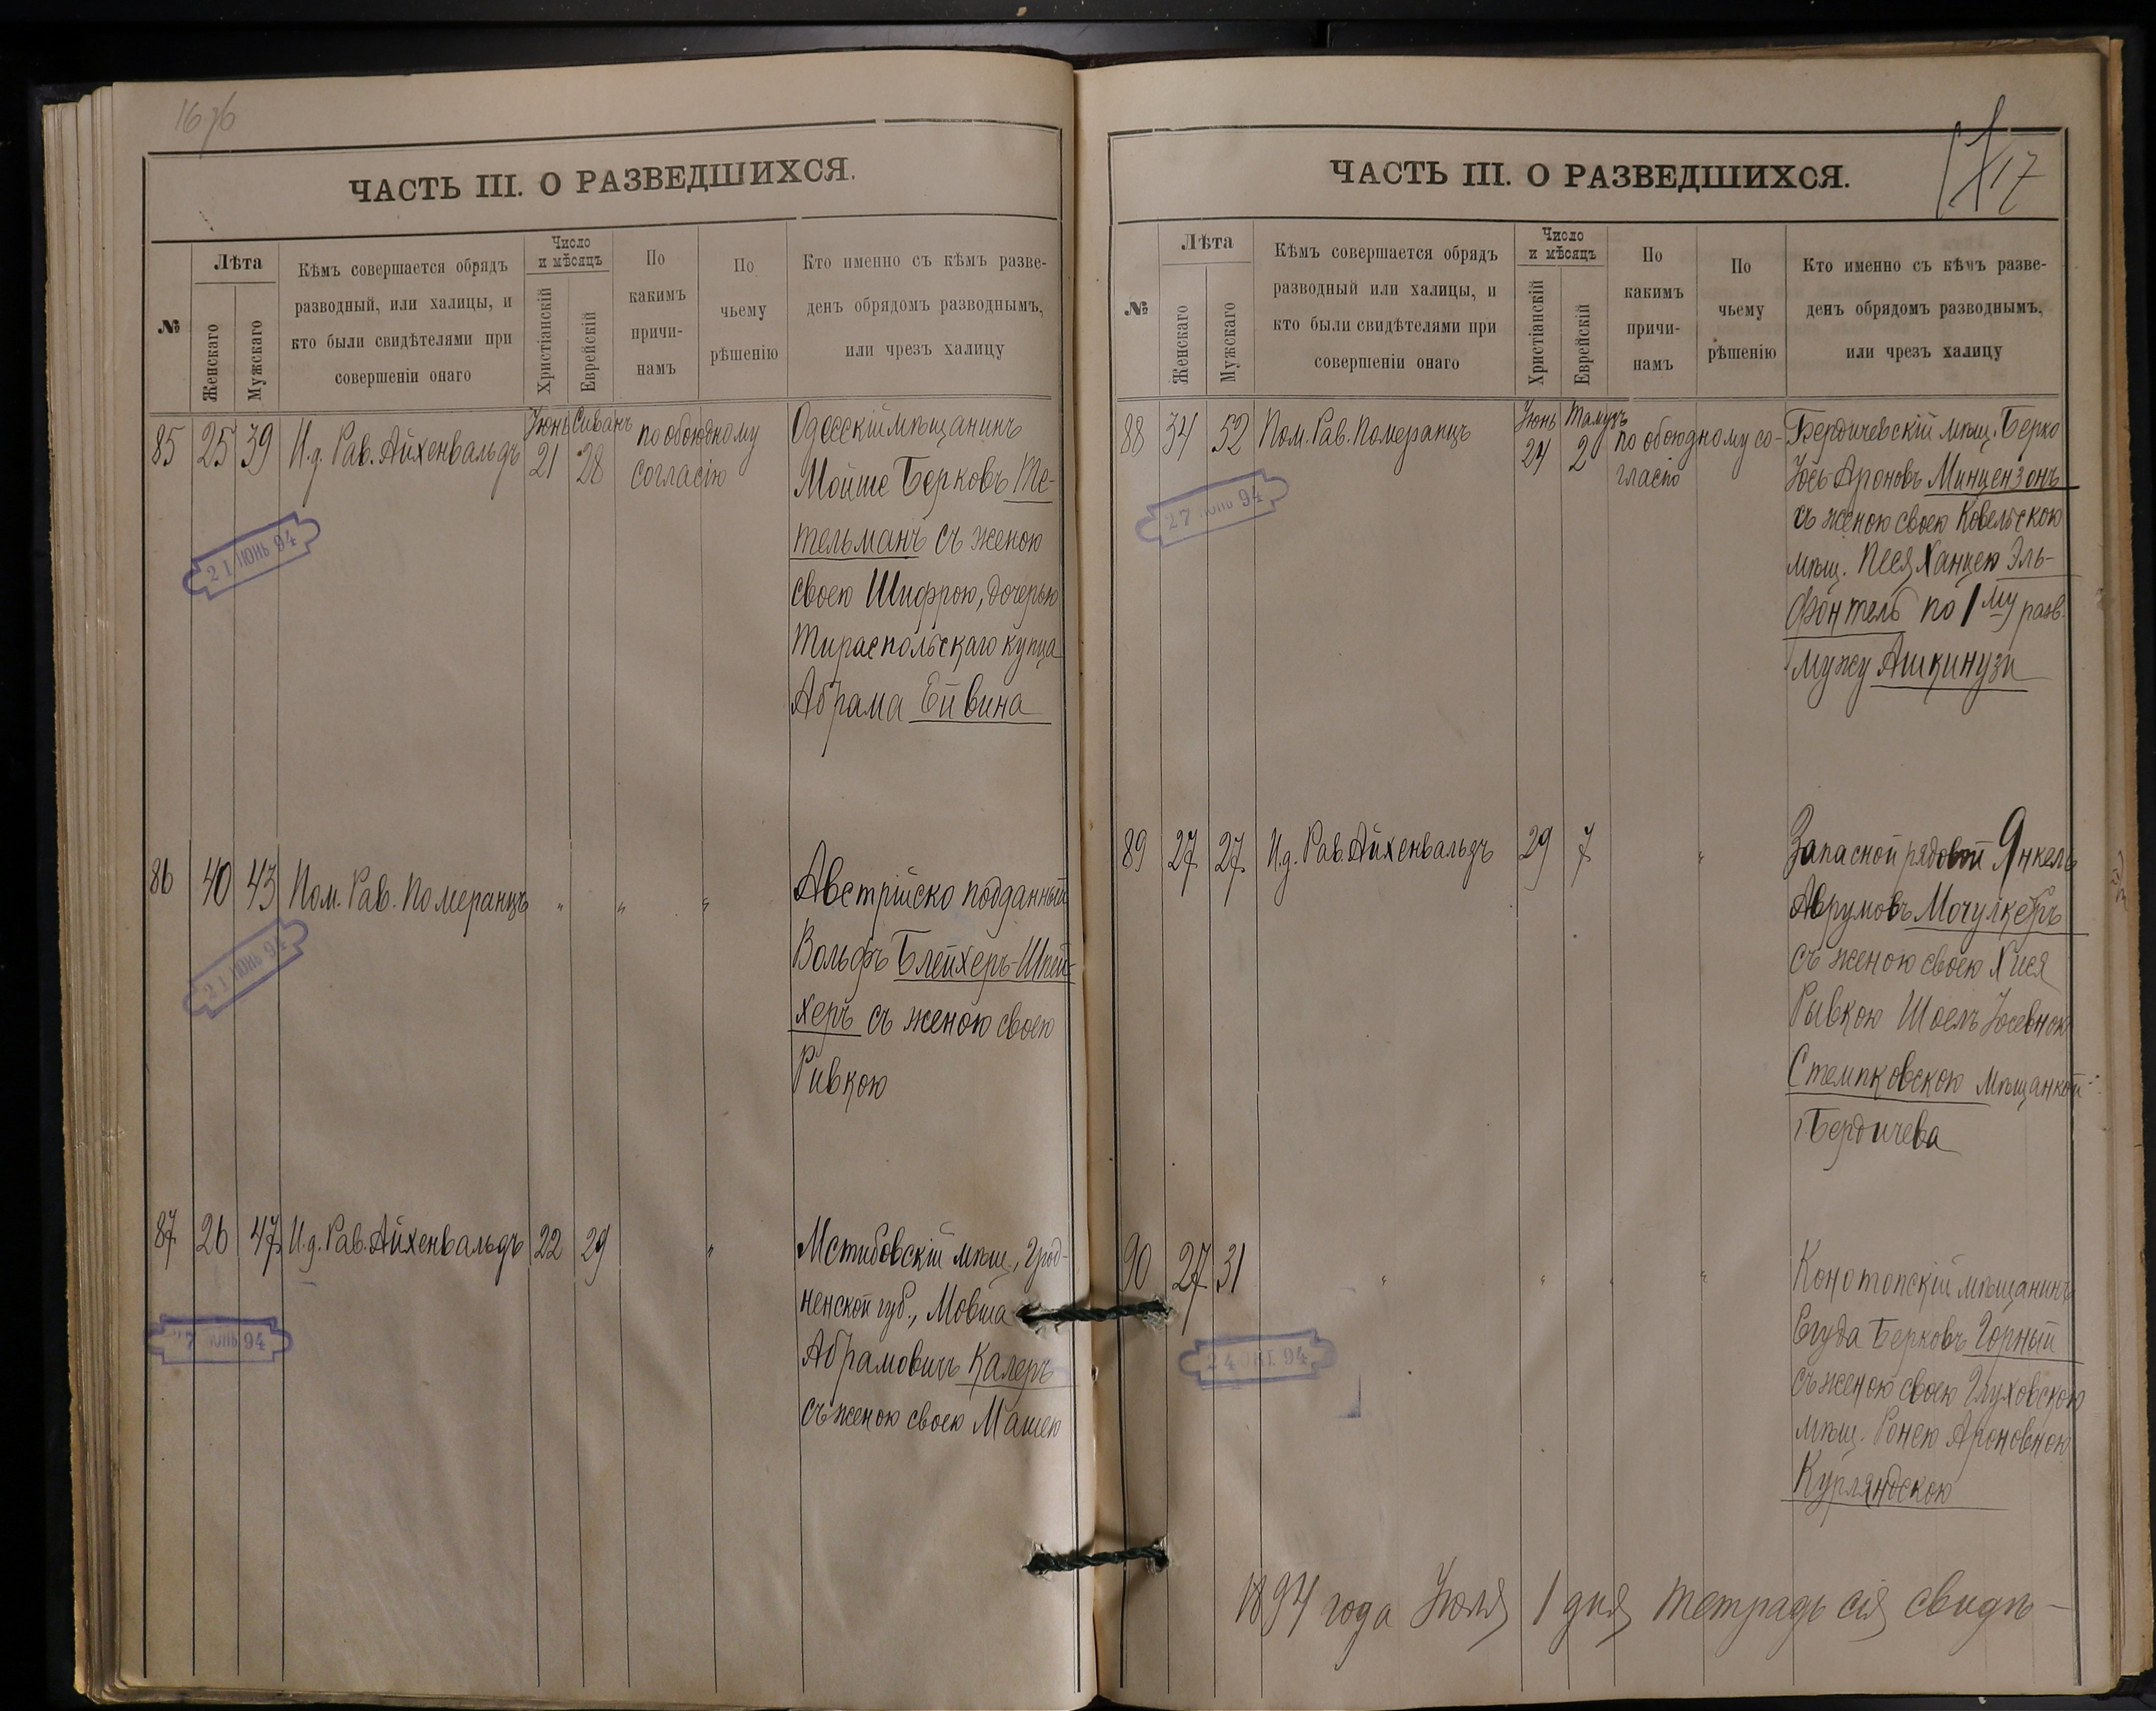 1676
ЧАСТЬ III. О РАЗВЕДШИХСЯ.
№
Лѣта
Женскаго
Мужскаго
Кѣмъ совершается обрядъ
разводный, или халицы, и
кто были свидѣтелями при
совершеніи онаго
Число
и мѣсяцъ
Христіанскій
Еврейскій
По
какимъ
причи-
намъ
По
чьему
рѣшенію
Кто именно съ кѣмъ разве-
денъ обрядомъ разводнымъ,
или чрезъ халицу
85 25 39 И.д. Рав. Айхенвальдъ Іюнь 21 Сиванъ 28 по обоюдному
согласію
Одесскій мѣщанинъ
Мойше Берковъ Те-
тельманъ съ женою
своею Шифрою, дочерью
Тираспольскаго купца
Абрама Ейвина
21 ІЮНЬ 94
86 40 43 Пом. Рав. Померанцъ " " "
Австрійско подданный
Вольфъ Блейхеръ-Шпей-
херъ съ женою своею
Ривкою
21 ІЮНЬ 94
87 26 47 И.д. Рав. Айхенвальдъ 22 29 "
Мстибовскій мѣщ., Грод-
ненской губ., Мовша
Абрамовичъ Калеръ
съ женою своею Машею
27 ІЮНЬ 94
17
ЧАСТЬ III. О РАЗВЕДШИХСЯ.
№
Лѣта
Женскаго
Мужскаго
Кѣмъ совершается обрядъ
разводный или халицы, и
кто были свидѣтелями при
совершеніи онаго
Число
и мѣсяцъ
Христіанскій
Еврейскій
По
какимъ
причи-
намъ
По
чьему
рѣшенію
Кто именно съ кѣмъ разве-
денъ обрядомъ разводнымъ,
или чрезъ халицу
88 34 52 Пом. Рав. Померанцъ Іюнь 24 Тамузъ 2 по обоюдному со-
гласію
Бердичевскій мѣщ. Берко
Іось-Ароновъ Минцензонъ
съ женою своею Ковельскою
мѣщ. Песя Ханцею Эль-
фонтель по 1му разв.
мужу Ашкинузи
27 ІЮНЬ 94
89 27 27 И.д. Рав. Айхенвальдъ 29 7 "
Запасной рядовой Янкель
Аврумовъ Мочулкеръ
съ женою своею Хися
Рывкою Шоелъ Іосевною
Стемпковскою мѣщанкой
г. Бердичева
90 27 31 " " " "
Конотопскій мѣщанинъ
Егуда Берковъ Горный
съ женою своею Глуховскою
мѣщ. Ронею Ароновною
Курляндскою
24 ОКТ. 94
1894 года Іюля 1 дня тетрадь сія свидѣ-